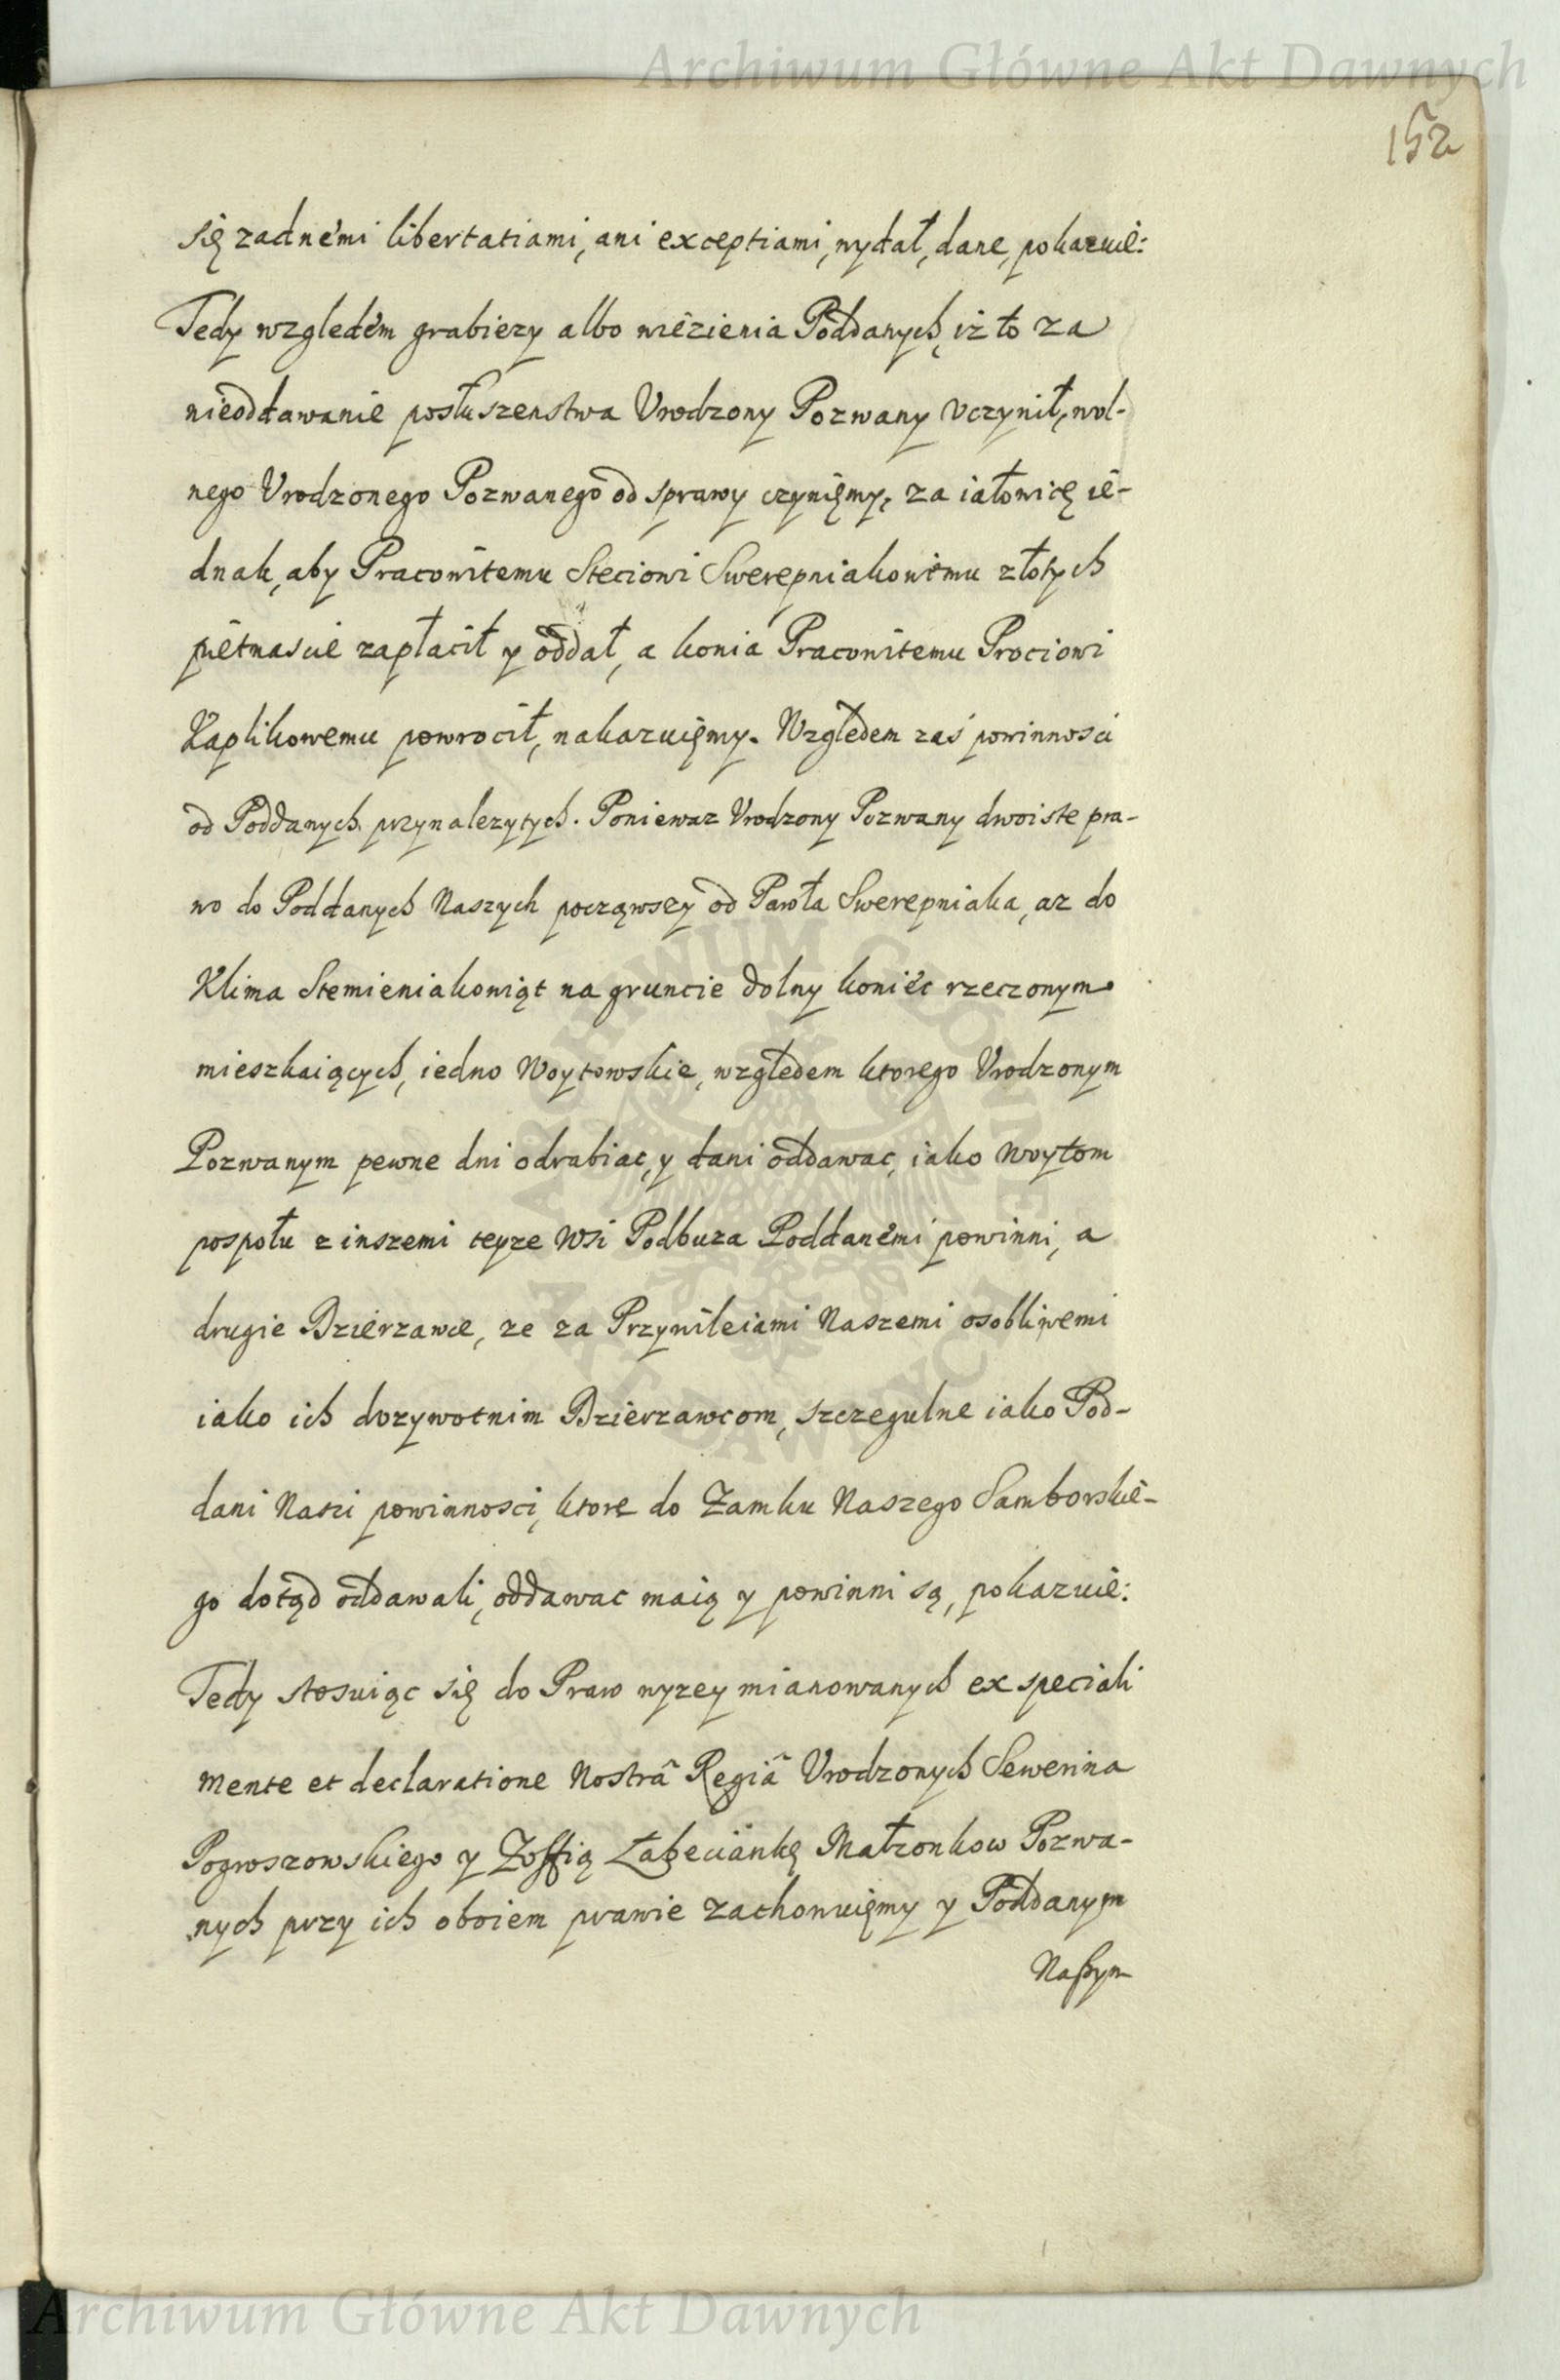 Archiwum Główne Akt Dawnych
152
się zadnémi libertatiami, ani exceptiami, wydał, dane, pokazuie:
Tedy względém grabiezy albo więzienia Poddanych, iż to za
nieoddawanie posłuszenstwa Vrodzony Pozwany vczynił, wol-
nego Vrodzonego Pozwanego od sprawy czynięmy, za iałowicę ie-
dnak, aby Pracowitemu Steciowi Swerepniakowemu złotych
piętnascie zapłacił y oddał, a konia Pracowitemu Prociowi
Kaplikowemu powrocił, nakazuięmy. Względem zaś powinnosci
od Poddanych przynalezytych. Poniewaz Vrodzony Pozwany dwoiste pra-
wo do Poddanych Naszych począwszy od Pawła Swerepniaka, az do
Klima Stemieniakowiąt na gruncie dolny koniec rzeczonym
mieszkaiących, iedno Woytowskie, względem ktorego Vrodzonym
Pozwanym pewne dni odrabiac, y dani oddawac, iako woytom
pospołu z inszemi teyze Wsi Podbuza Poddanémi powinni, a
drugie Dzierzawce, ze za Przywileiami Naszemi osobliwemi
iako ich dozywotnim Dzierzawcom, szczegulne iako Pod-
dani Naszi powinnosci, ktore do Zamku Naszego Samborskie-
go dotąd oddawali, oddawac maią y powinni są, pokazuie:
Tedy stosuiąc się do Praw wyzey mianowanych ex speciali
mente et declaratione Nostrâ Regiâ Vrodzonych Sewerina
Pogroszowskiego y Zoffią Łabęciankę Małzonkow Pozwa-
nych przy ich oboiem prawie zachowuięmy y Poddanym
Naßym
ARCHIWUM GŁÓWNE AKT DAWNYCH
Archiwum Główne Akt Dawnych